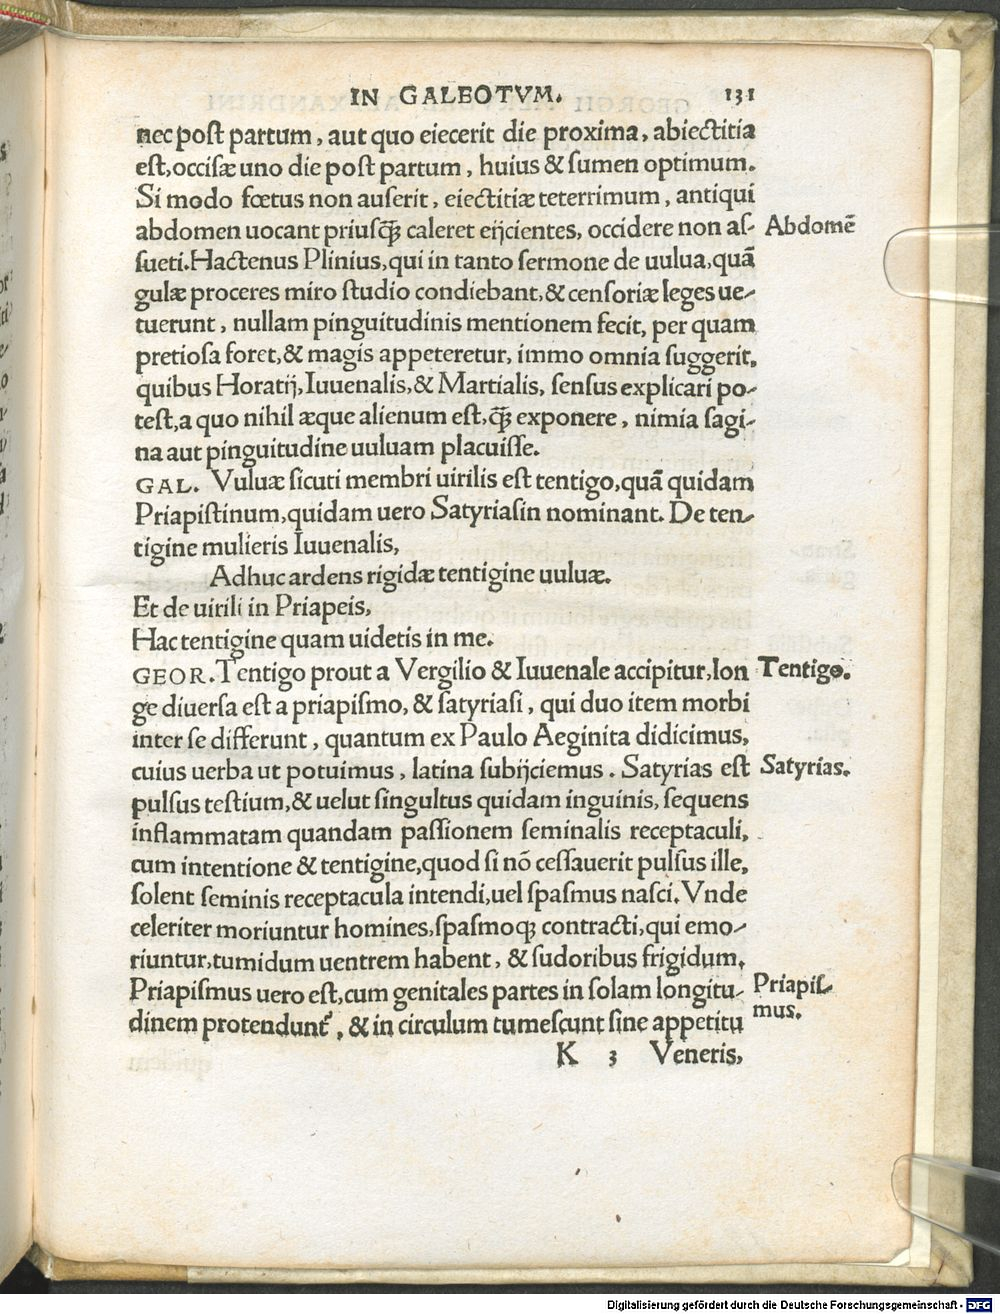 IN GALEOTVM. 131
nec poſt partum, aut quo eiecerit die proxima, abiectitia
eſt, occiſæ uno die poſt partum, huius & ſumen optimum.
Si modo fœtus non auſerit, eiectitiæ teterrimum, antiqui
abdomen uocant priuſq̃ꝫ caleret eijcientes, occidere non aſ- Abdomẽ
ſueti. Hactenus Plinius, qui in tanto ſermone de uulua, quã
gulæ proceres miro ſtudio condiebant, & cenſoriæ leges ue-
tuerunt, nullam pinguitudinis mentionem fecit, per quam
pretioſa foret, & magis appeteretur, immo omnia ſuggerit,
quibus Horatij, Iuuenalis, & Martialis, ſenſus explicari po-
teſt, a quo nihil æque alienum eſt, q̃ꝫ exponere, nimia ſagi-
na aut pinguitudine uuluam placuiſſe.
GAL. Vuluæ ſicuti membri uirilis eſt tentigo, quã quidam
Priapiſtinum, quidam uero Satyriaſin nominant. De ten-
tigine mulieris Iuuenalis,
Adhuc ardens rigidæ tentigine uuluæ.
Et de uirili in Priapeis,
Hac tentigine quam uidetis in me.
GEOR. Tentigo prout a Vergilio & Iuuenale accipitur, lon Tentigo.
ge diuerſa eſt a priapiſmo, & ſatyriaſi, qui duo item morbi
inter ſe differunt, quantum ex Paulo Aeginita didicimus,
cuius uerba ut potuimus, latina ſubijciemus. Satyrias eſt Satyrias.
pulſus teſtium, & uelut ſingultus quidam inguinis, ſequens
inflammatam quandam paſſionem ſeminalis receptaculi,
cum intentione & tentigine, quod ſi nõ ceſſauerit pulſus ille,
ſolent ſeminis receptacula intendi, uel ſpaſmus naſci. Vnde
celeriter moriuntur homines, ſpaſmoqꝫ contracti, qui emo-
riuntur, tumidum uentrem habent, & ſudoribus frigidum.
Priapiſmus uero eſt, cum genitales partes in ſolam longitu- Priapiſ-
dinem protendunt᷑, & in circulum tumeſcunt ſine appetitu mus.
K 3 Veneris,
Digitalisierung gefördert durch die Deutsche Forschungsgemeinschaft - DFG